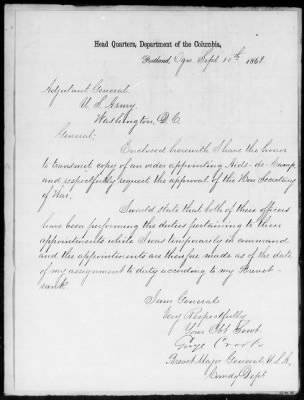 Head Quarters, Department of the Columbia,
Portland, Ogn. Sept. 10th 1868
Adjutant General
U. S. Army
Washington, D.C.
General:
Enclosed herewith I have the honor
to transmit copy of an order appointing Aids-de-Camp
and respectfully request the approval of the Hon Secretary
of War.
I would state that both of these officers
have been performing the duties pertaining to these
appointments while I was temporarily in command
and the appointments are therefore made as of the date
of my assignment to duty according to my Brevet
rank
I am General
Very Respectfully
Your Obt Servt
George Crook
Brevet Major General U.S.A.
Comdg Dept